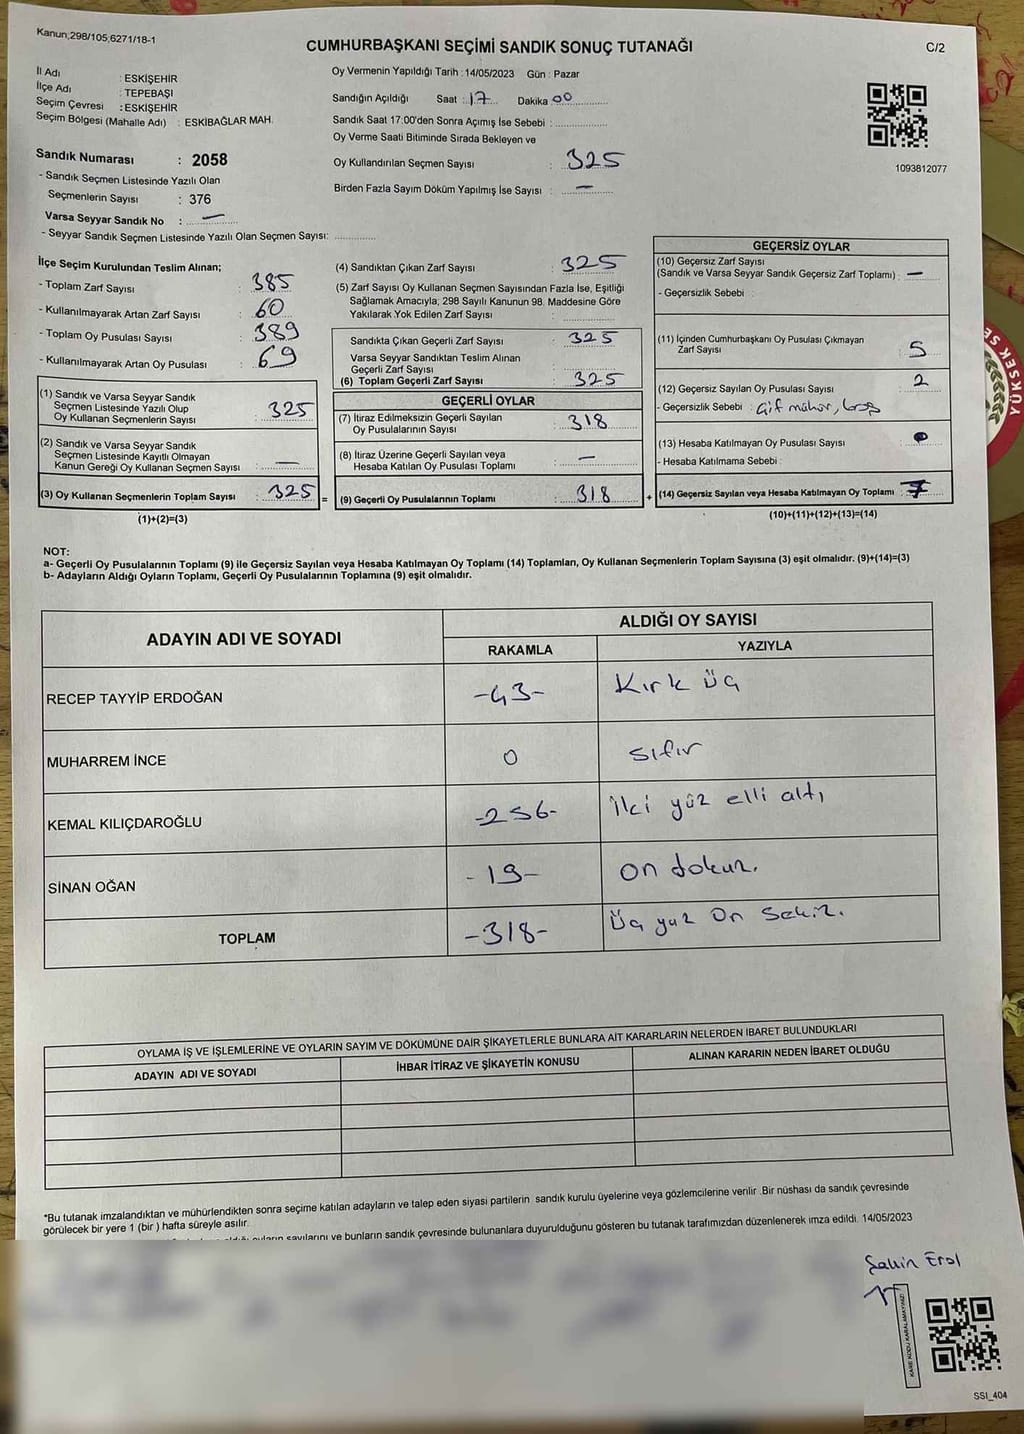 Kanun;298/105;6271/18-1
CUMHURBAŞKANI SEÇİMİ SANDIK SONUÇ TUTANAĞI
C/2
İl Adı : ESKİŞEHİR
İlçe Adı : TEPEBAŞI
Seçim Çevresi : ESKİŞEHİR
Seçim Bölgesi (Mahalle Adı) : ESKİBAĞLAR MAH.
Oy Vermenin Yapıldığı Tarih : 14/05/2023 Gün : Pazar
Sandığın Açıldığı Saat : 17 Dakika 00
Sandık Saat 17:00'den Sonra Açımış İse Sebebi :
Oy Verme Saati Bitiminde Sırada Bekleyen ve
Oy Kullandırılan Seçmen Sayısı : 325
Birden Fazla Sayım Döküm Yapılmış İse Sayısı : –
1093812077
Sandık Numarası : 2058
- Sandık Seçmen Listesinde Yazılı Olan
Seçmenlerin Sayısı : 376
Varsa Seyyar Sandık No : –
- Seyyar Sandık Seçmen Listesinde Yazılı Olan Seçmen Sayısı:
İlçe Seçim Kurulundan Teslim Alınan;
- Toplam Zarf Sayısı : 385
- Kullanılmayarak Artan Zarf Sayısı : 60
- Toplam Oy Pusulası Sayısı : 389
- Kullanılmayarak Artan Oy Pusulası : 69
(1) Sandık ve Varsa Seyyar Sandık
Seçmen Listesinde Yazılı Olup
Oy Kullanan Seçmenlerin Sayısı : 325
(2) Sandık ve Varsa Seyyar Sandık
Seçmen Listesinde Kayıtlı Olmayan
Kanun Gereği Oy Kullanan Seçmen Sayısı : –
(3) Oy Kullanan Seçmenlerin Toplam Sayısı : 325 =
(1)+(2)=(3)
(4) Sandıktan Çıkan Zarf Sayısı : 325
(5) Zarf Sayısı Oy Kullanan Seçmen Sayısından Fazla İse, Eşitliği
Sağlamak Amacıyla; 298 Sayılı Kanunun 98. Maddesine Göre
Yakılarak Yok Edilen Zarf Sayısı :
Sandıkta Çıkan Geçerli Zarf Sayısı : 325
Varsa Seyyar Sandıktan Teslim Alınan
Geçerli Zarf Sayısı :
(6) Toplam Geçerli Zarf Sayısı : 325
GEÇERLİ OYLAR
(7) İtiraz Edilmeksizin Geçerli Sayılan
Oy Pusulalarının Sayısı : 318
(8) İtiraz Üzerine Geçerli Sayılan veya
Hesaba Katılan Oy Pusulası Toplamı : –
(9) Geçerli Oy Pusulalarının Toplamı : 318 +
GEÇERSİZ OYLAR
(10) Geçersiz Zarf Sayısı
(Sandık ve Varsa Seyyar Sandık Geçersiz Zarf Toplamı) : –
- Geçersizlik Sebebi :
(11) İçinden Cumhurbaşkanı Oy Pusulası Çıkmayan
Zarf Sayısı : 5
(12) Geçersiz Sayılan Oy Pusulası Sayısı : 2
- Geçersizlik Sebebi : Çift mühür, boş
(13) Hesaba Katılmayan Oy Pusulası Sayısı :
- Hesaba Katılmama Sebebi :
(14) Geçersiz Sayılan veya Hesaba Katılmayan Oy Toplamı : 7
(10)+(11)+(12)+(13)=(14)
NOT:
a- Geçerli Oy Pusulalarının Toplamı (9) ile Geçersiz Sayılan veya Hesaba Katılmayan Oy Toplamı (14) Toplamları, Oy Kullanan Seçmenlerin Toplam Sayısına (3) eşit olmalıdır. (9)+(14)=(3)
b- Adayların Aldığı Oyların Toplamı, Geçerli Oy Pusulalarının Toplamına (9) eşit olmalıdır.
ADAYIN ADI VE SOYADI
ALDIĞI OY SAYISI
RAKAMLA YAZIYLA
RECEP TAYYİP ERDOĞAN -43- Kırk üç
MUHARREM İNCE 0 sıfır
KEMAL KILIÇDAROĞLU -256- İki yüz elli altı
SİNAN OĞAN -19- on dokuz.
TOPLAM -318- Üç yüz On Sekiz.
OYLAMA İŞ VE İŞLEMLERİNE VE OYLARIN SAYIM VE DÖKÜMÜNE DAİR ŞİKAYETLERLE BUNLARA AİT KARARLARIN NELERDEN İBARET BULUNDUKLARI
ADAYIN ADI VE SOYADI İHBAR İTİRAZ VE ŞİKAYETİN KONUSU ALINAN KARARIN NEDEN İBARET OLDUĞU
*Bu tutanak imzalandıktan ve mühürlendikten sonra seçime katılan adayların ve talep eden siyasi partilerin sandık kurulu üyelerine veya gözlemcilerine verilir .Bir nüshası da sandık çevresinde
görülecek bir yere 1 (bir ) hafta süreyle asılır.
oyların sayılarını ve bunların sandık çevresinde bulunanlara duyurulduğunu gösteren bu tutanak tarafımızdan düzenlenerek imza edildi. 14/05/2023
Şahin Erol
KARE KODU KARALAMAYINIZ!
SSI_404
YÜKSEK SE